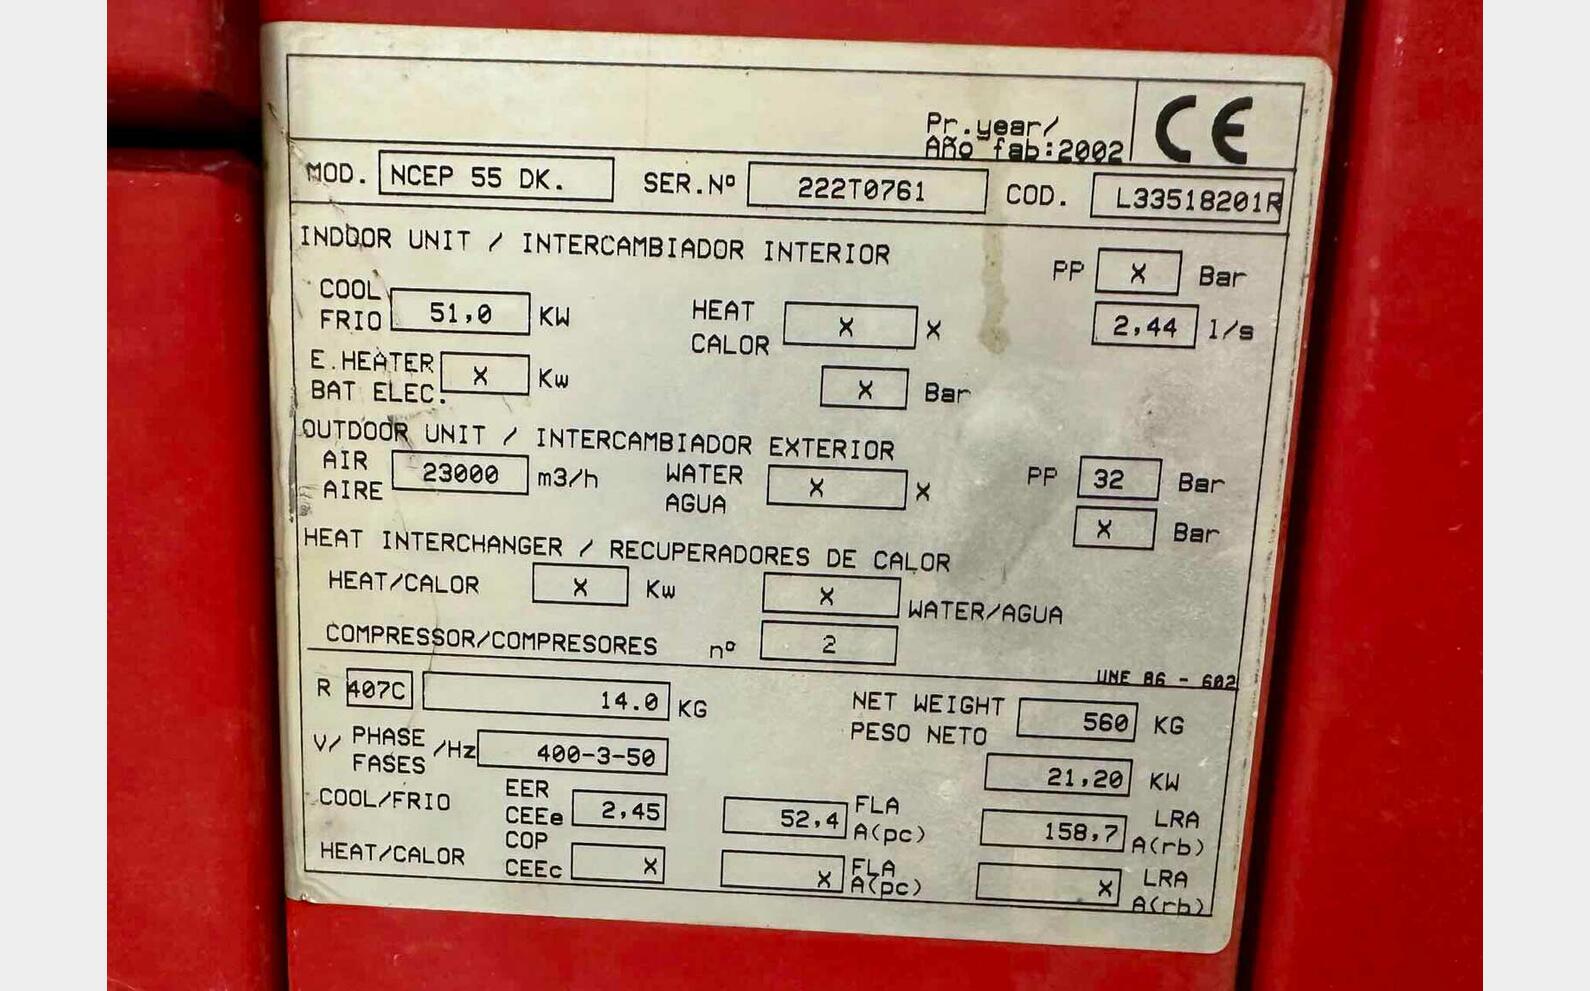 Pr.year/
Año fab:2002
CE
MOD. NCEP 55 DK. SER.Nº 222T0761 COD. L33518201R
INDOOR UNIT / INTERCAMBIADOR INTERIOR
PP X Bar
COOL
FRIO 51,0 KW
HEAT
CALOR X X
2,44 l/s
E.HEATER
BAT ELEC. X Kw
X Bar
OUTDOOR UNIT / INTERCAMBIADOR EXTERIOR
AIR
AIRE 23000 m3/h
WATER
AGUA X X
PP 32 Bar
X Bar
HEAT INTERCHANGER / RECUPERADORES DE CALOR
HEAT/CALOR X Kw X WATER/AGUA
COMPRESSOR/COMPRESORES nº 2
UNE 86 - 602
R 407C 14.0 KG
NET WEIGHT
PESO NETO 560 KG
V/ PHASE
FASES /Hz 400-3-50
21,20 KW
COOL/FRIO EER
CEEe 2,45 52,4 FLA
A(pc) 158,7 LRA
A(rb)
HEAT/CALOR COP
CEEc X X FLA
A(pc) X LRA
A(rb)